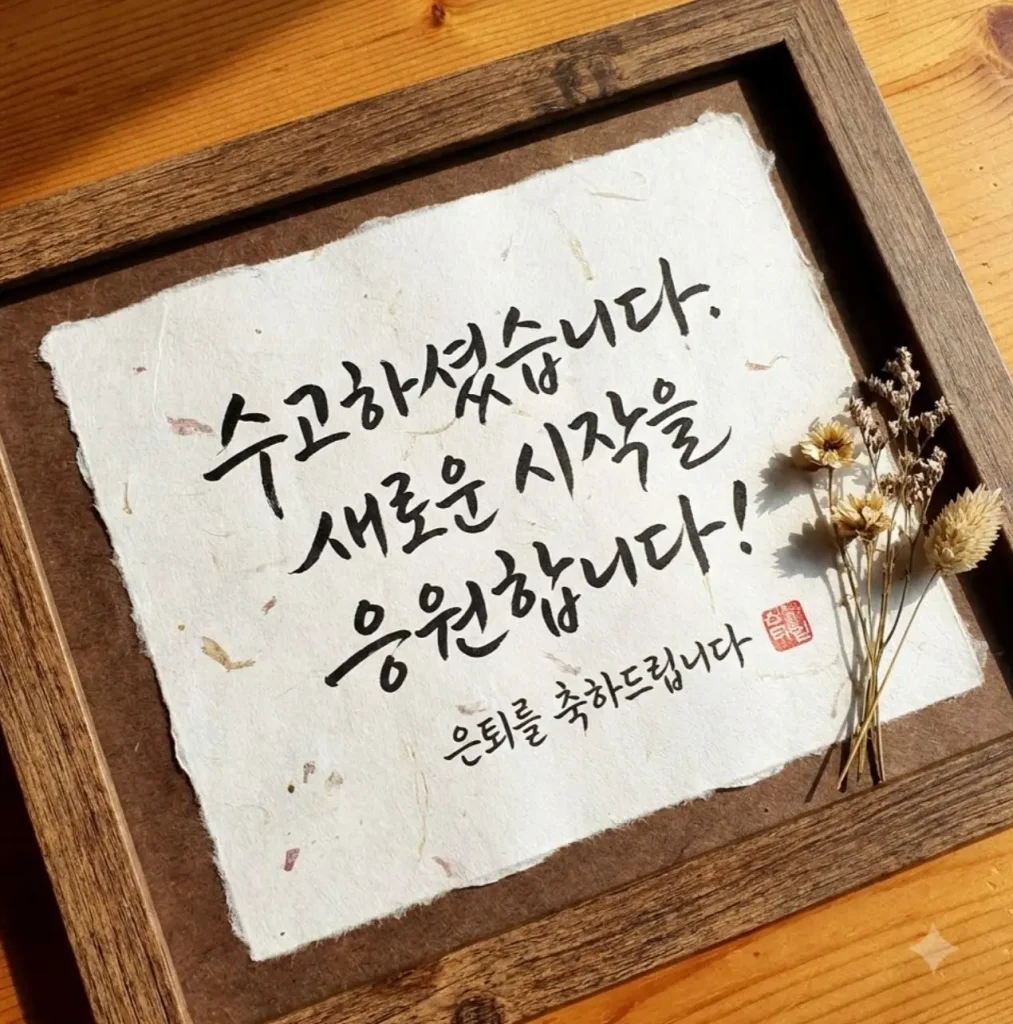 수고하셨습니다.
새로운 시작을
응원합니다!
은퇴를 축하드립니다